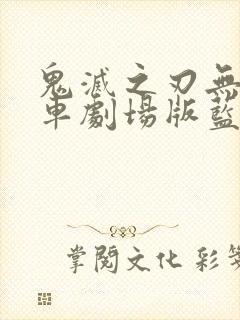 鬼滅之刃無
車劇場版藍
掌閱文化 彩